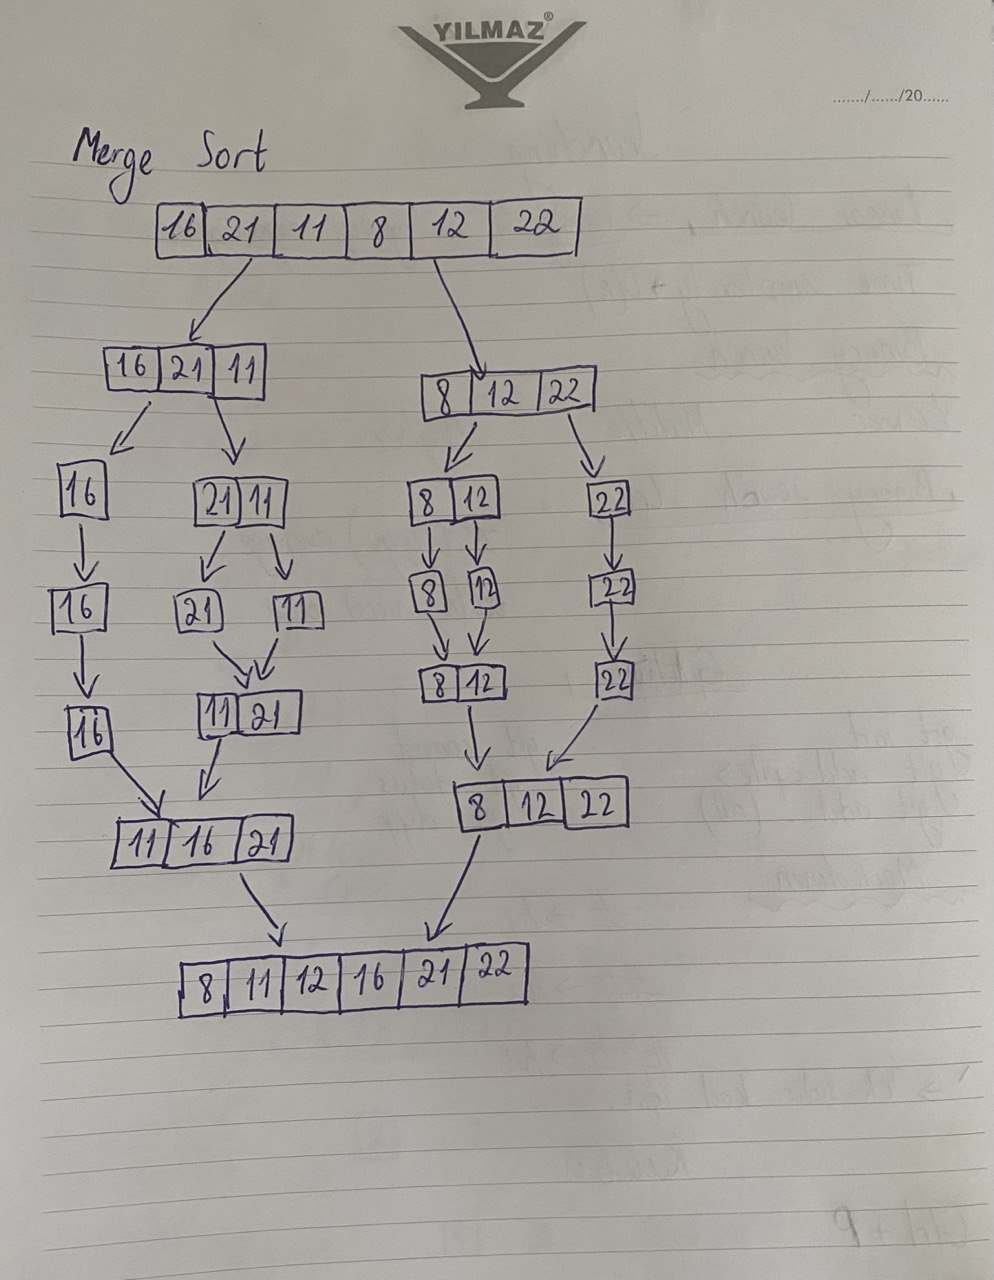 YILMAZ®
......./....../20......
Merge Sort
16 21 11 8 12 22
16 21 11
8 12 22
16 21 11 8 12 22
16 21 11 8 12 22
16 11 21 8 12 22
11 16 21 8 12 22
8 11 12 16 21 22